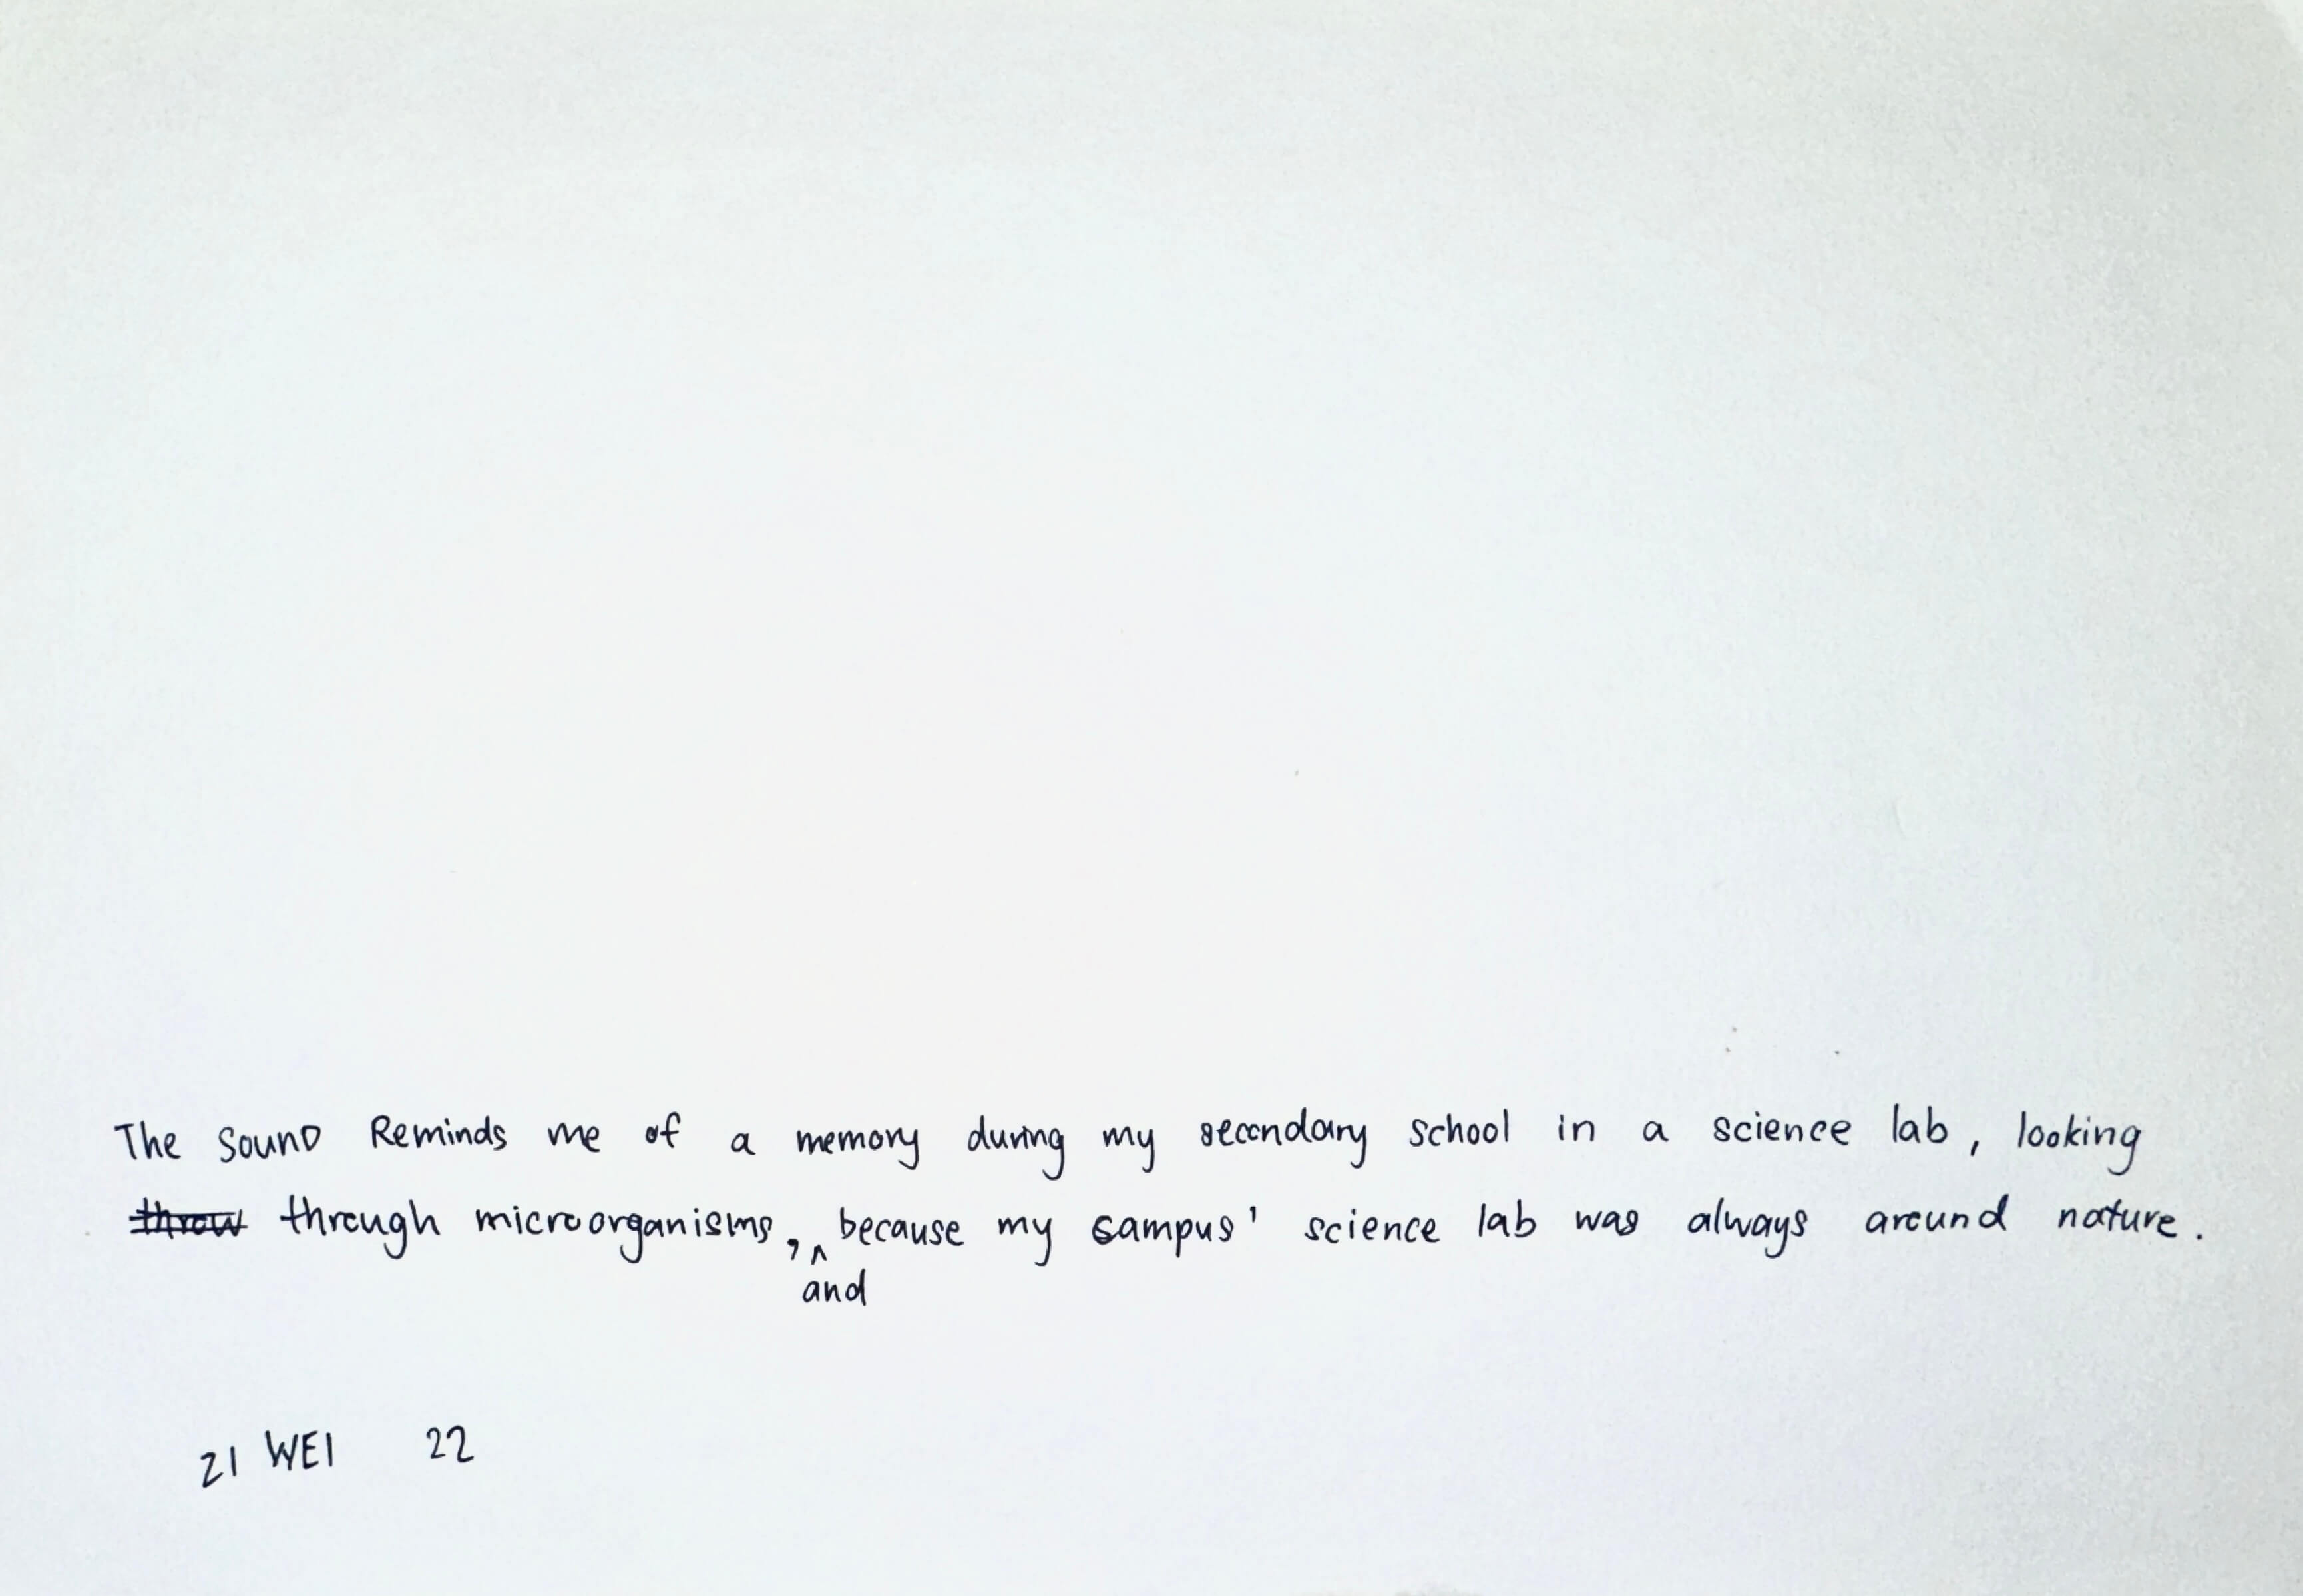 The SounD Reminds me of a memory during my secondary school in a science lab, looking
throw through microorganisms, ^ because my campus' science lab was always around nature.
and
ZI WEI 22